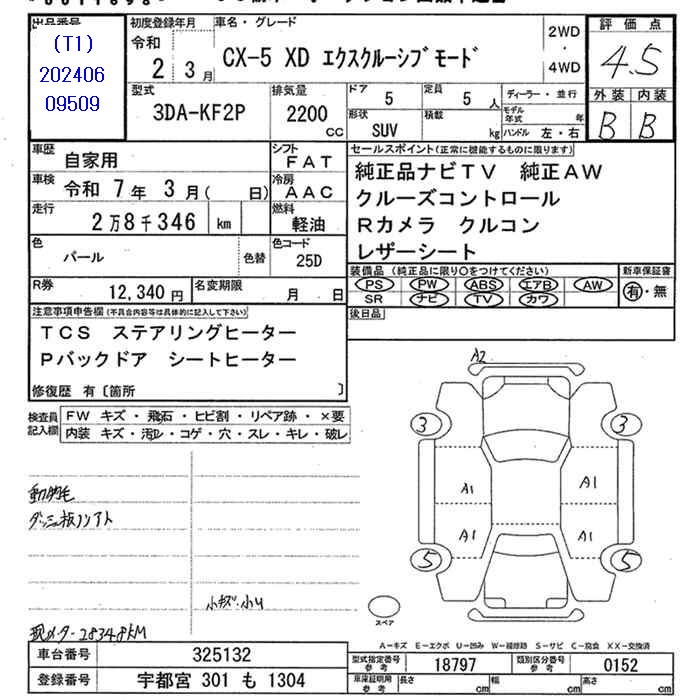 出品番号
(T1)
202406
09509
初度登録年月 車名・グレード
令和
2 3月
CX-5 XD エクスクルーシブモード
2WD
・
4WD
評価点
4.5
外装 内装
B B
型式
3DA-KF2P
排気量
2200
CC
ドア 5
定員 5 人
形状 SUV
積載 kg
ディーラー・並行
モデル年式 年
ハンドル 左・右
車歴 自家用
シフト FAT
車検 令和 7年 3月( 日)
冷房 AAC
走行 2万8千346 km
燃料 軽油
色 パール 色替
色コード 25D
R券 12,340円
名変期限 月 日
セールスポイント(正常に機能するものに限ります)
純正品ナビTV 純正AW
クルーズコントロール
Rカメラ クルコン
レザーシート
装備品 (純正品に限り○をつけてください)
PS PW ABS エアB AW
SR ナビ TV カワ
新車保証書
有・無
後日品
注意事項申告欄(不具合内容等は具体的に記入して下さい)
TCS ステアリングヒーター
Pバックドア シートヒーター
修復歴 有〔箇所 〕
検査員記入欄
FW キズ・飛石・ヒビ割・リペア跡・×要
内装 キズ・汚れ・コゲ・穴・スレ・キレ・破レ
動物毛
小キズ・小U
現メーター28348KM
A2
3 3
A1 A1
A1 A1
5 5
スペア
A-キズ E-エクボ U-凹み W-補修跡 S-サビ C-腐食 XX-交換済
車台番号 325132
登録番号 宇都宮 301 も 1304
型式指定番号 参考 18797
類別区分番号 参考 0152
車庫証明用 参考
長さ cm 幅 cm 高さ cm